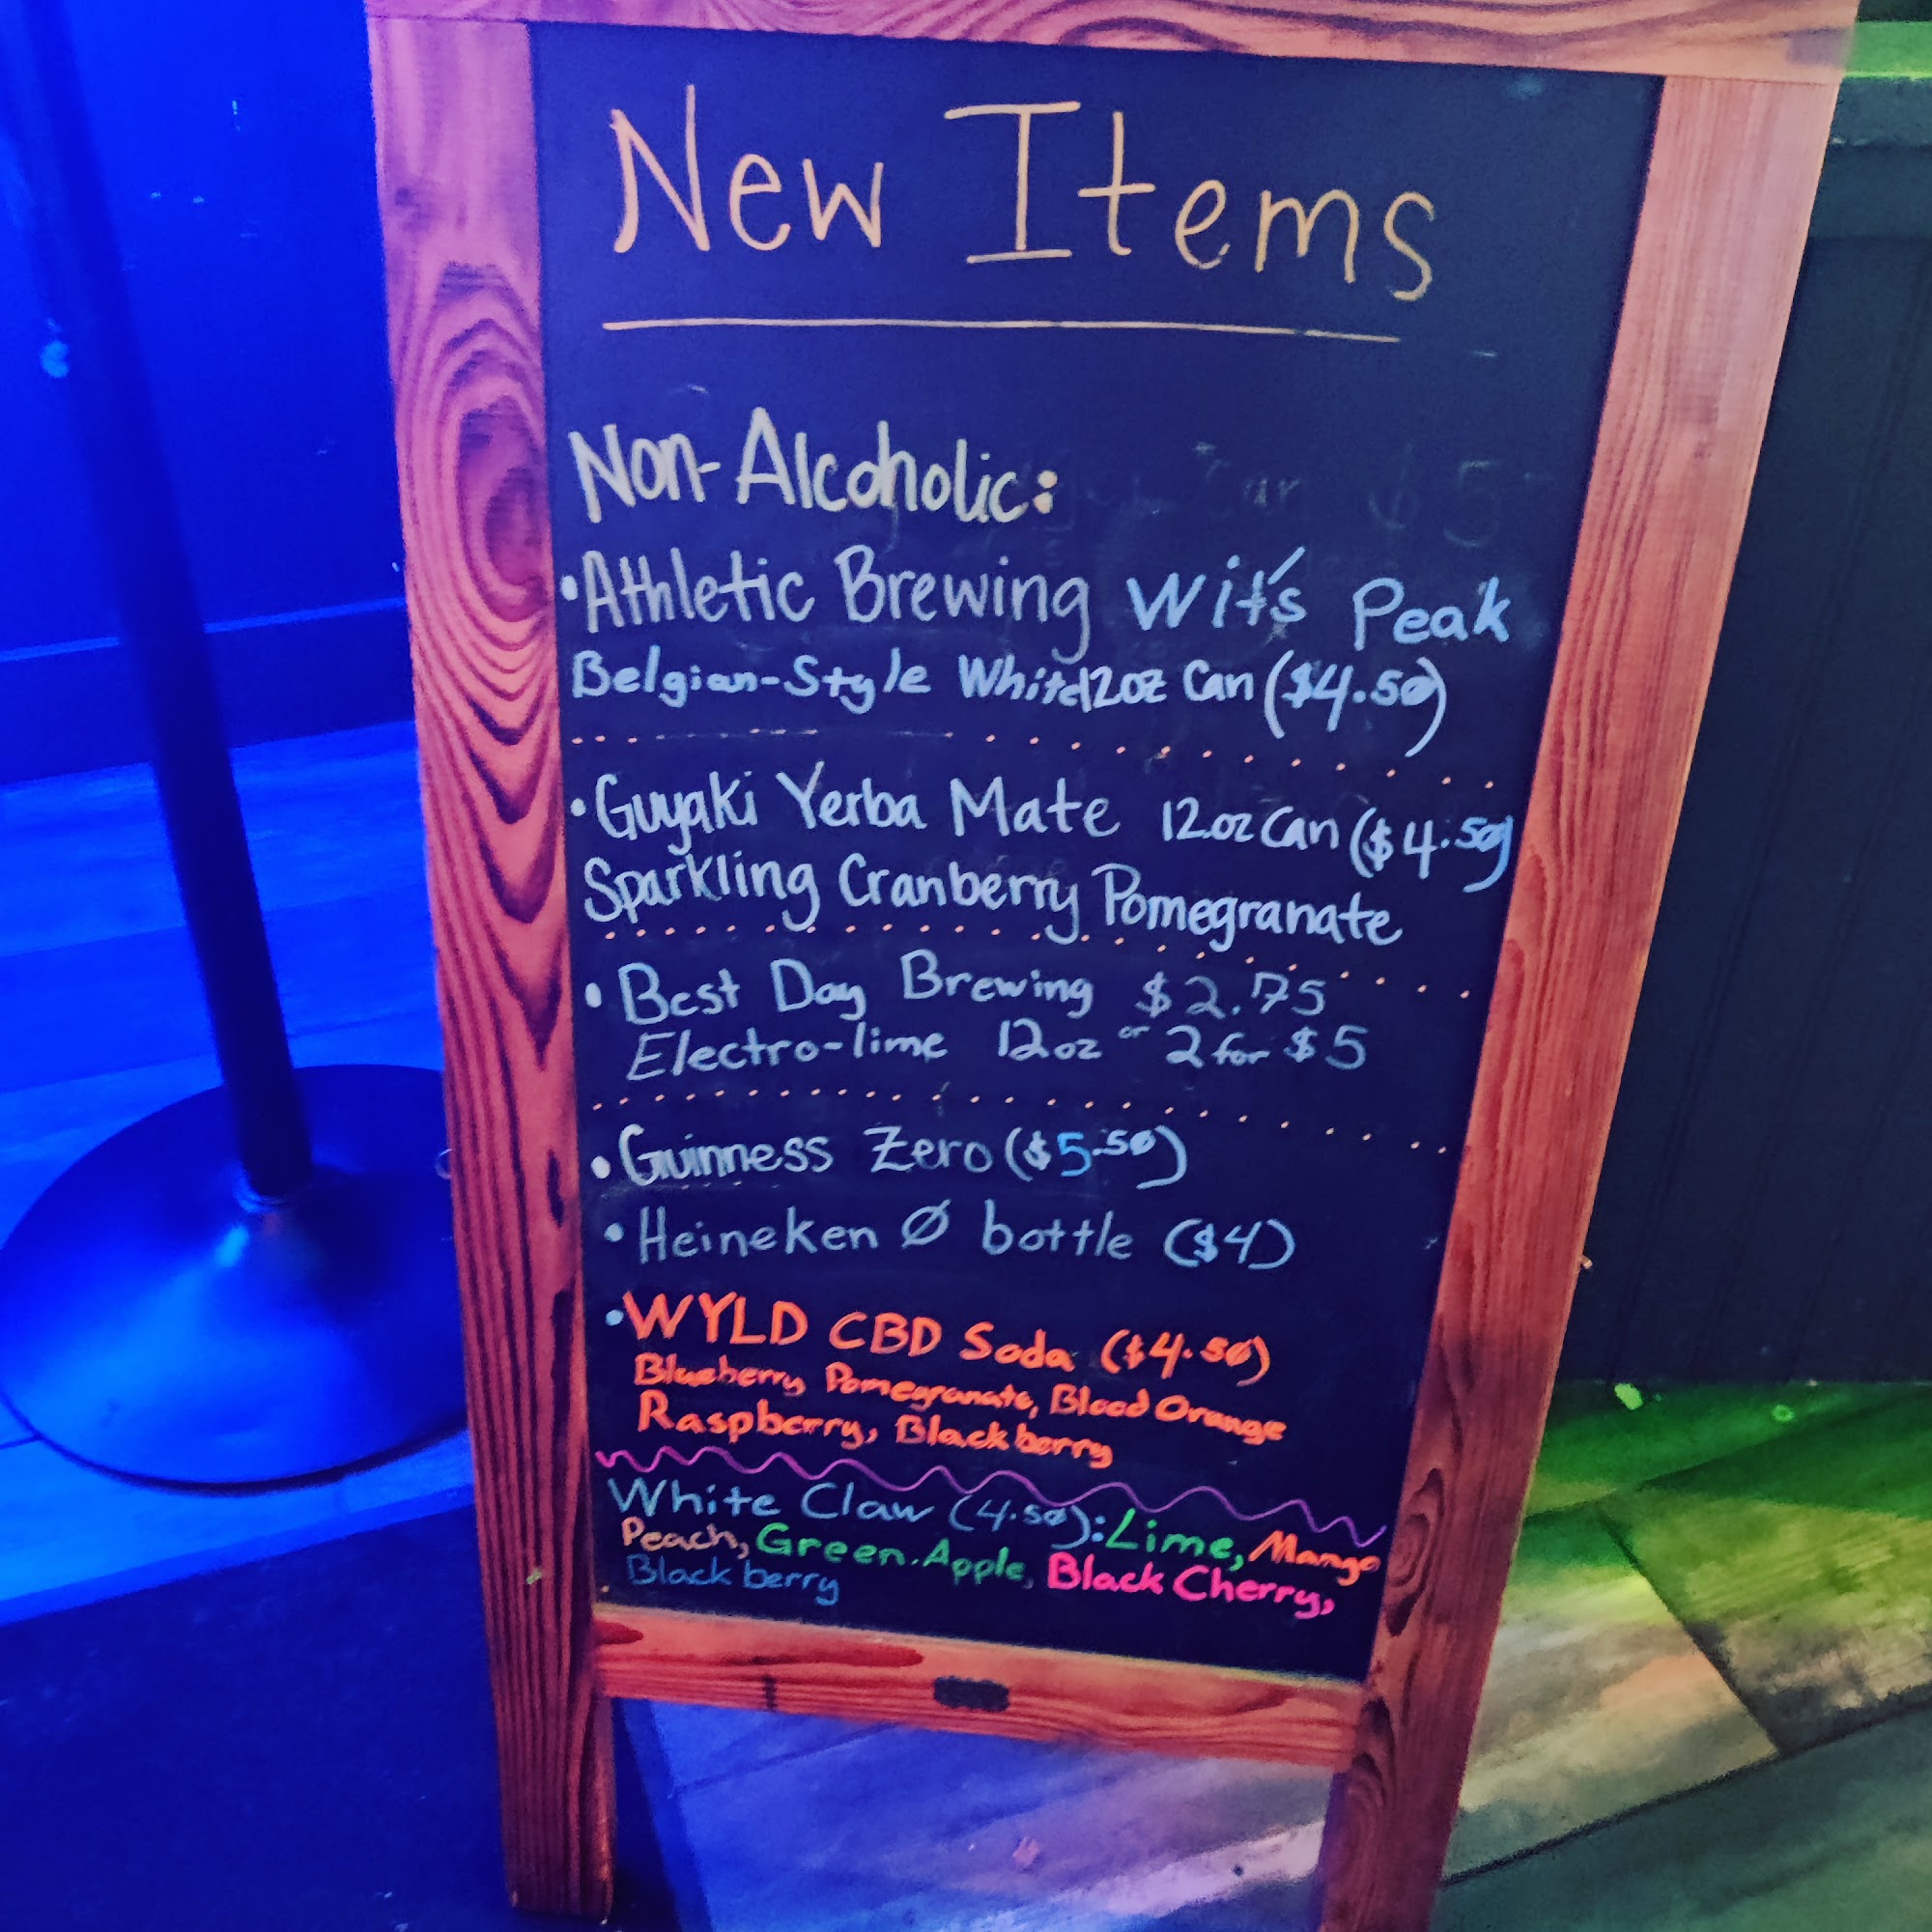 New Items
Non-Alcoholic:
•Athletic Brewing Wit's Peak
Belgian-Style White 12oz Can ($4.50)
•Guyaki Yerba Mate 12oz Can ($4.50)
Sparkling Cranberry Pomegranate
• Best Day Brewing $2.75
Electro-lime 12oz or 2 for $5
• Guinness Zero ($5.50)
• Heineken Ø bottle ($4)
•WYLD CBD Soda ($4.50)
Blueberry, Pomegranate, Blood Orange
Raspberry, Blackberry
White Claw (4.50): Lime, Mango
Peach, Green.Apple, Black Cherry,
Blackberry